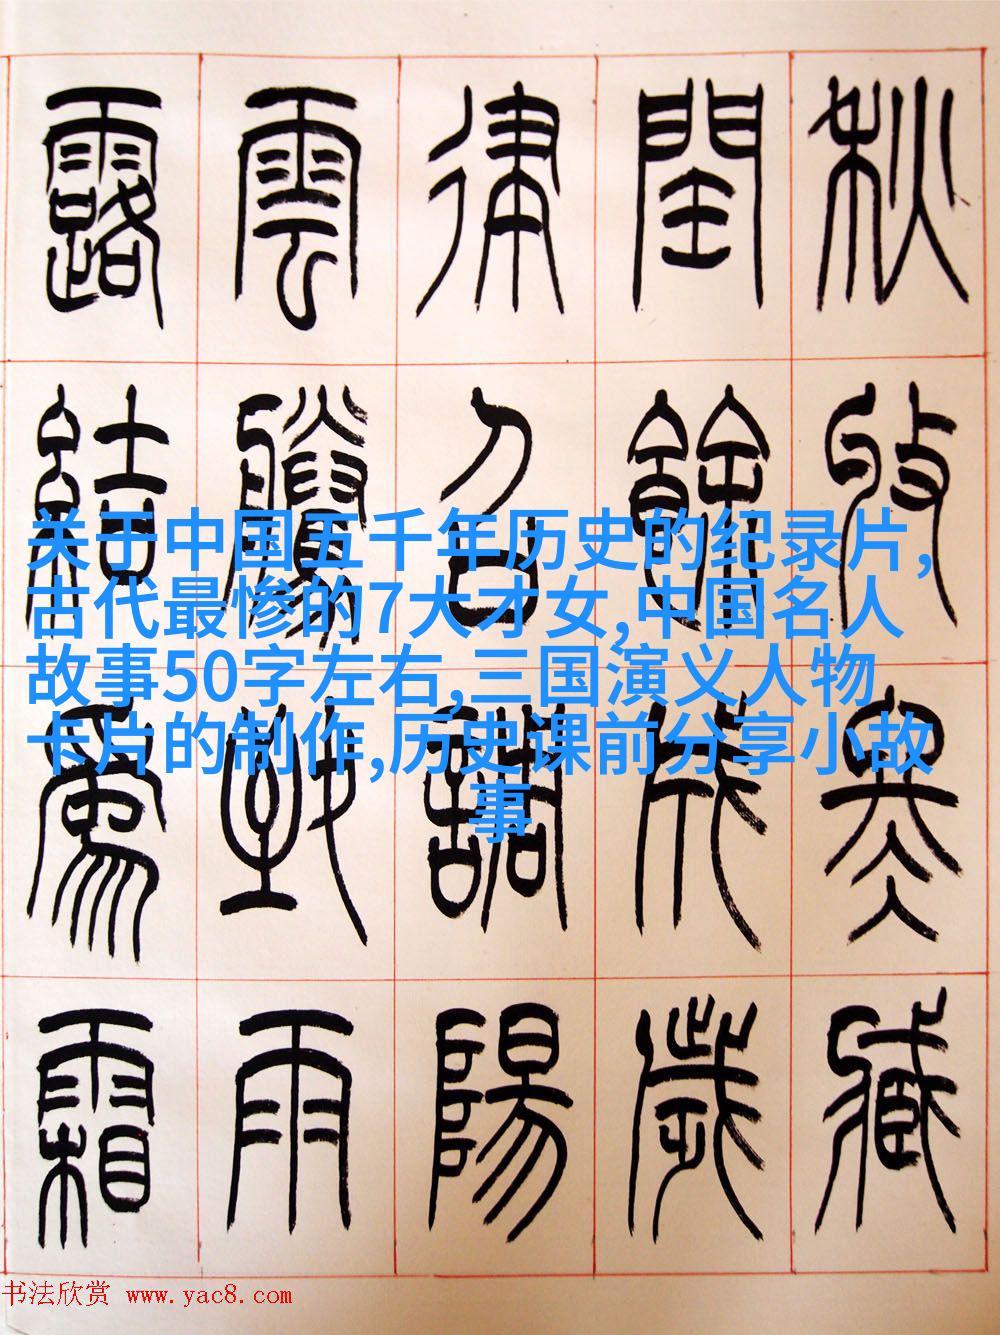 秋收冬藏
閏餘成歲
律召調陽
雲騰致雨
露結為霜
关于中国五千年历史的纪录片,
古代最惨的7大才女,中国名人
故事50字左右,三国演义人物
卡片的制作,历史课前分享小故
事
书法欣赏 www.yac8.com